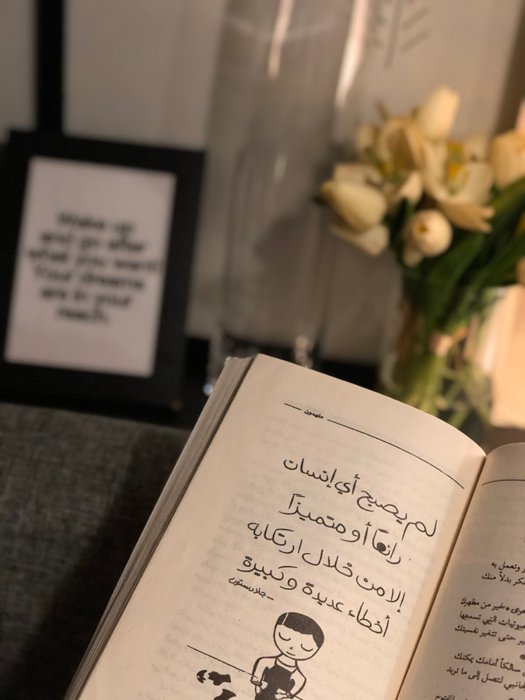 Wake up
and go after
what you want
Your dreams
are in your
reach.
ملهمون
لم يصبح أي إنسان
رائعًا أو متميزًا
إلا من خلال ارتكابه
أخطاء عديدة وكبيرة
- جلادستون
وتعمل به
بدلاً منك
خير من مظهرك
التي تسمعها
حتى تتغير نفسيتك
سالكاً أمامك يمكنك
لتصل إلى ما تريد